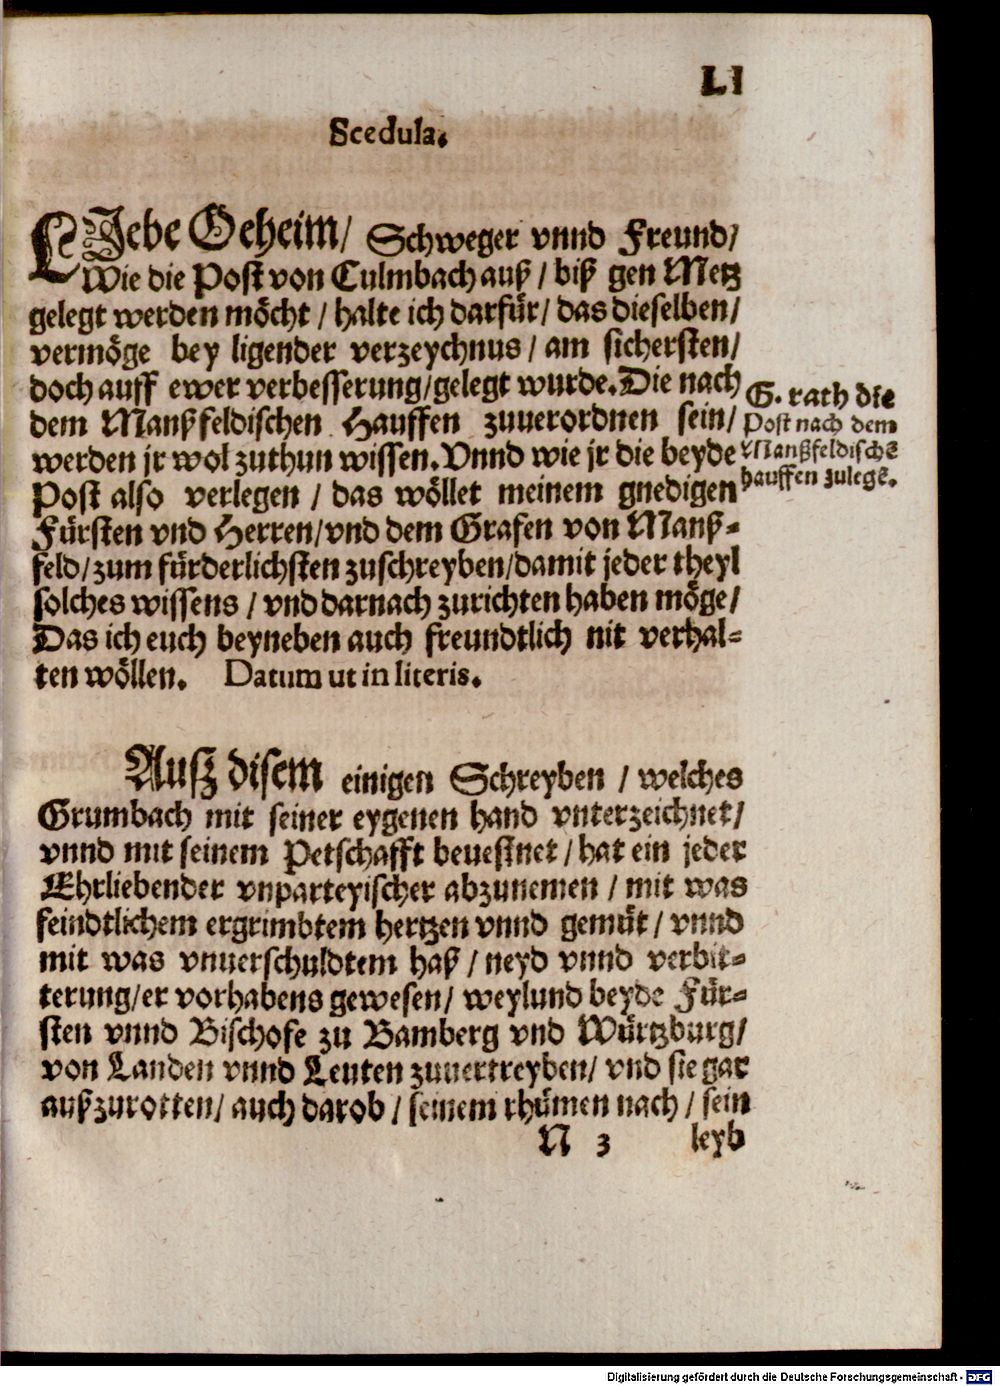 LI
Scedula.
LJebe Geheim/ Schweger vnnd Freund/
Wie die Post von Culmbach auß / biß gen Metz
gelegt werden möcht / halte ich darfür/ das dieselben/
vermöge bey ligender verzeychnus / am sichersten/
doch auff ewer verbesserung/gelegt wurde. Die nach
dem Manßfeldischen Hauffen zuuerordnen sein/
werden jr wol zuthun wissen. Vnnd wie jr die beyde
Post also verlegen / das wöllet meinem gnedigen
Fürsten vnd Herren/vnd dem Grafen von Manß=
feld/zum fürderlichsten zuschreyben/damit jeder theyl
solches wissens / vnd darnach zurichten haben möge/
Das ich euch beyneben auch freundtlich nit verhal=
ten wöllen. Datum ut in literis.
G. rath die
Post nach dem
Manßfeldischẽ
hauffen zulegẽ.
Ausz disem einigen Schreyben / welches
Grumbach mit seiner eygenen hand vnterzeichnet/
vnnd mit seinem Petschafft beuestnet / hat ein jeder
Ehrliebender vnparteyischer abzunemen / mit was
feindtlichem ergrimbtem hertzen vnnd gemüt / vnnd
mit was vnuerschuldtem haß / neyd vnnd verbit=
terung/er vorhabens gewesen/ weylund beyde Für=
sten vnnd Bischofe zu Bamberg vnd Würtzburg/
von Landen vnnd Leuten zuuertreyben/ vnd sie gar
außzurotten/ auch darob / seinem rhümen nach / sein
N 3 leyb
Digitalisierung gefördert durch die Deutsche Forschungsgemeinschaft - DFG